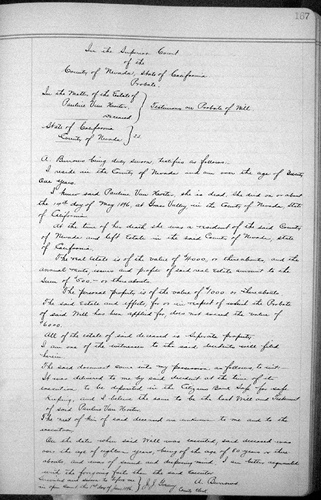 167
In the Superior Court
of the
County of Nevada, State of California
Probate.
In the Matter of the Estate of
Pauline Van Hosten,
Deceased
Testimony on Probate of Will.
State of California
County of Nevada
ss.
A. Burrows being duly sworn, testifies as follows.
I reside in the County of Nevada and am over the age of twenty
one years.
I knew said Pauline Van Hosten, she is dead. She died on or about
the 14th day of May 1896, at Grass Valley in the County of Nevada, State
of California.
At the time of her death she was a resident of the said County
of Nevada and left estate in the said County of Nevada, State
of California.
The real estate is of the value of $4000, or thereabouts, and the
annual rents, issues and profits of said real estate amount to the
Sum of $500.- or thereabouts.
The personal property is of the value of $1000. or thereabouts
The said estate and effects, for or in respect of which the Probate
of said Will has been applied for, does not exceed the value of
$6000.
All of the estate of said deceased is separate property.
I am one of the witnesses to the said will filed
herein.
The said document came into my possession, as follows to wit:-
It was delivered to me by said decedent at the time of its
execution, to be deposited in the Citizens Bank Safe for safe
keeping, and I believe the same to be the last Will and Testament
of said Pauline Van Hosten.
The next of kin of said deceased are unknown to me and to the
executors.
At the date when said Will was executed, said deceased was
over the age of eighteen years, being of the age of 80 years or there
abouts, and was of sound and disposing mind. I am better acquainted
with the foregoing facts than the said Executor
A. Burrows
Subscribed and sworn to before me
in open Court this 1st day of June 1896
County Clerk